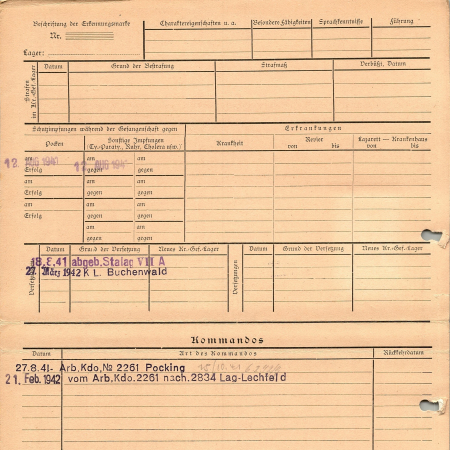 Beschriftung der Erkennungsmarke
Nr.
Lager:
Charaktereigenschaften u. a.
Besondere Fähigkeiten
Sprachkenntnisse
Führung
Strafen
in Kr.-Gef.-Lager
Datum
Grund der Bestrafung
Strafmaß
Verbüßt, Datum
Schutzimpfungen während der Gefangenschaft gegen
Pocken
Sonstige Impfungen
(Ty.-Paraty., Ruhr, Cholera usw.)
am
Erfolg
am
Erfolg
am
Erfolg
am
am
gegen
am
gegen
am
gegen
am
gegen
am
gegen
am
gegen
am
gegen
am
gegen
12 AUG 1941
12 AUG 1941
Erkrankungen
Krankheit
Revier
von bis
Lazarett — Krankenhaus
von bis
Versetzungen
Datum
Grund der Versetzung
Neues Kr.-Gef.-Lager
18.8.41 abgeb. Stalag VII A
27. März 1942 K L. Buchenwald
Versetzungen
Datum
Grund der Versetzung
Neues Kr.-Gef.-Lager
Kommandos
Datum
Art des Kommandos
Rückkehrdatum
27.8.41- Arb.Kdo, № 2261 Pocking
21. Feb. 1942 vom Arb.Kdo.2261 nach.2834 Lag-Lechfeld